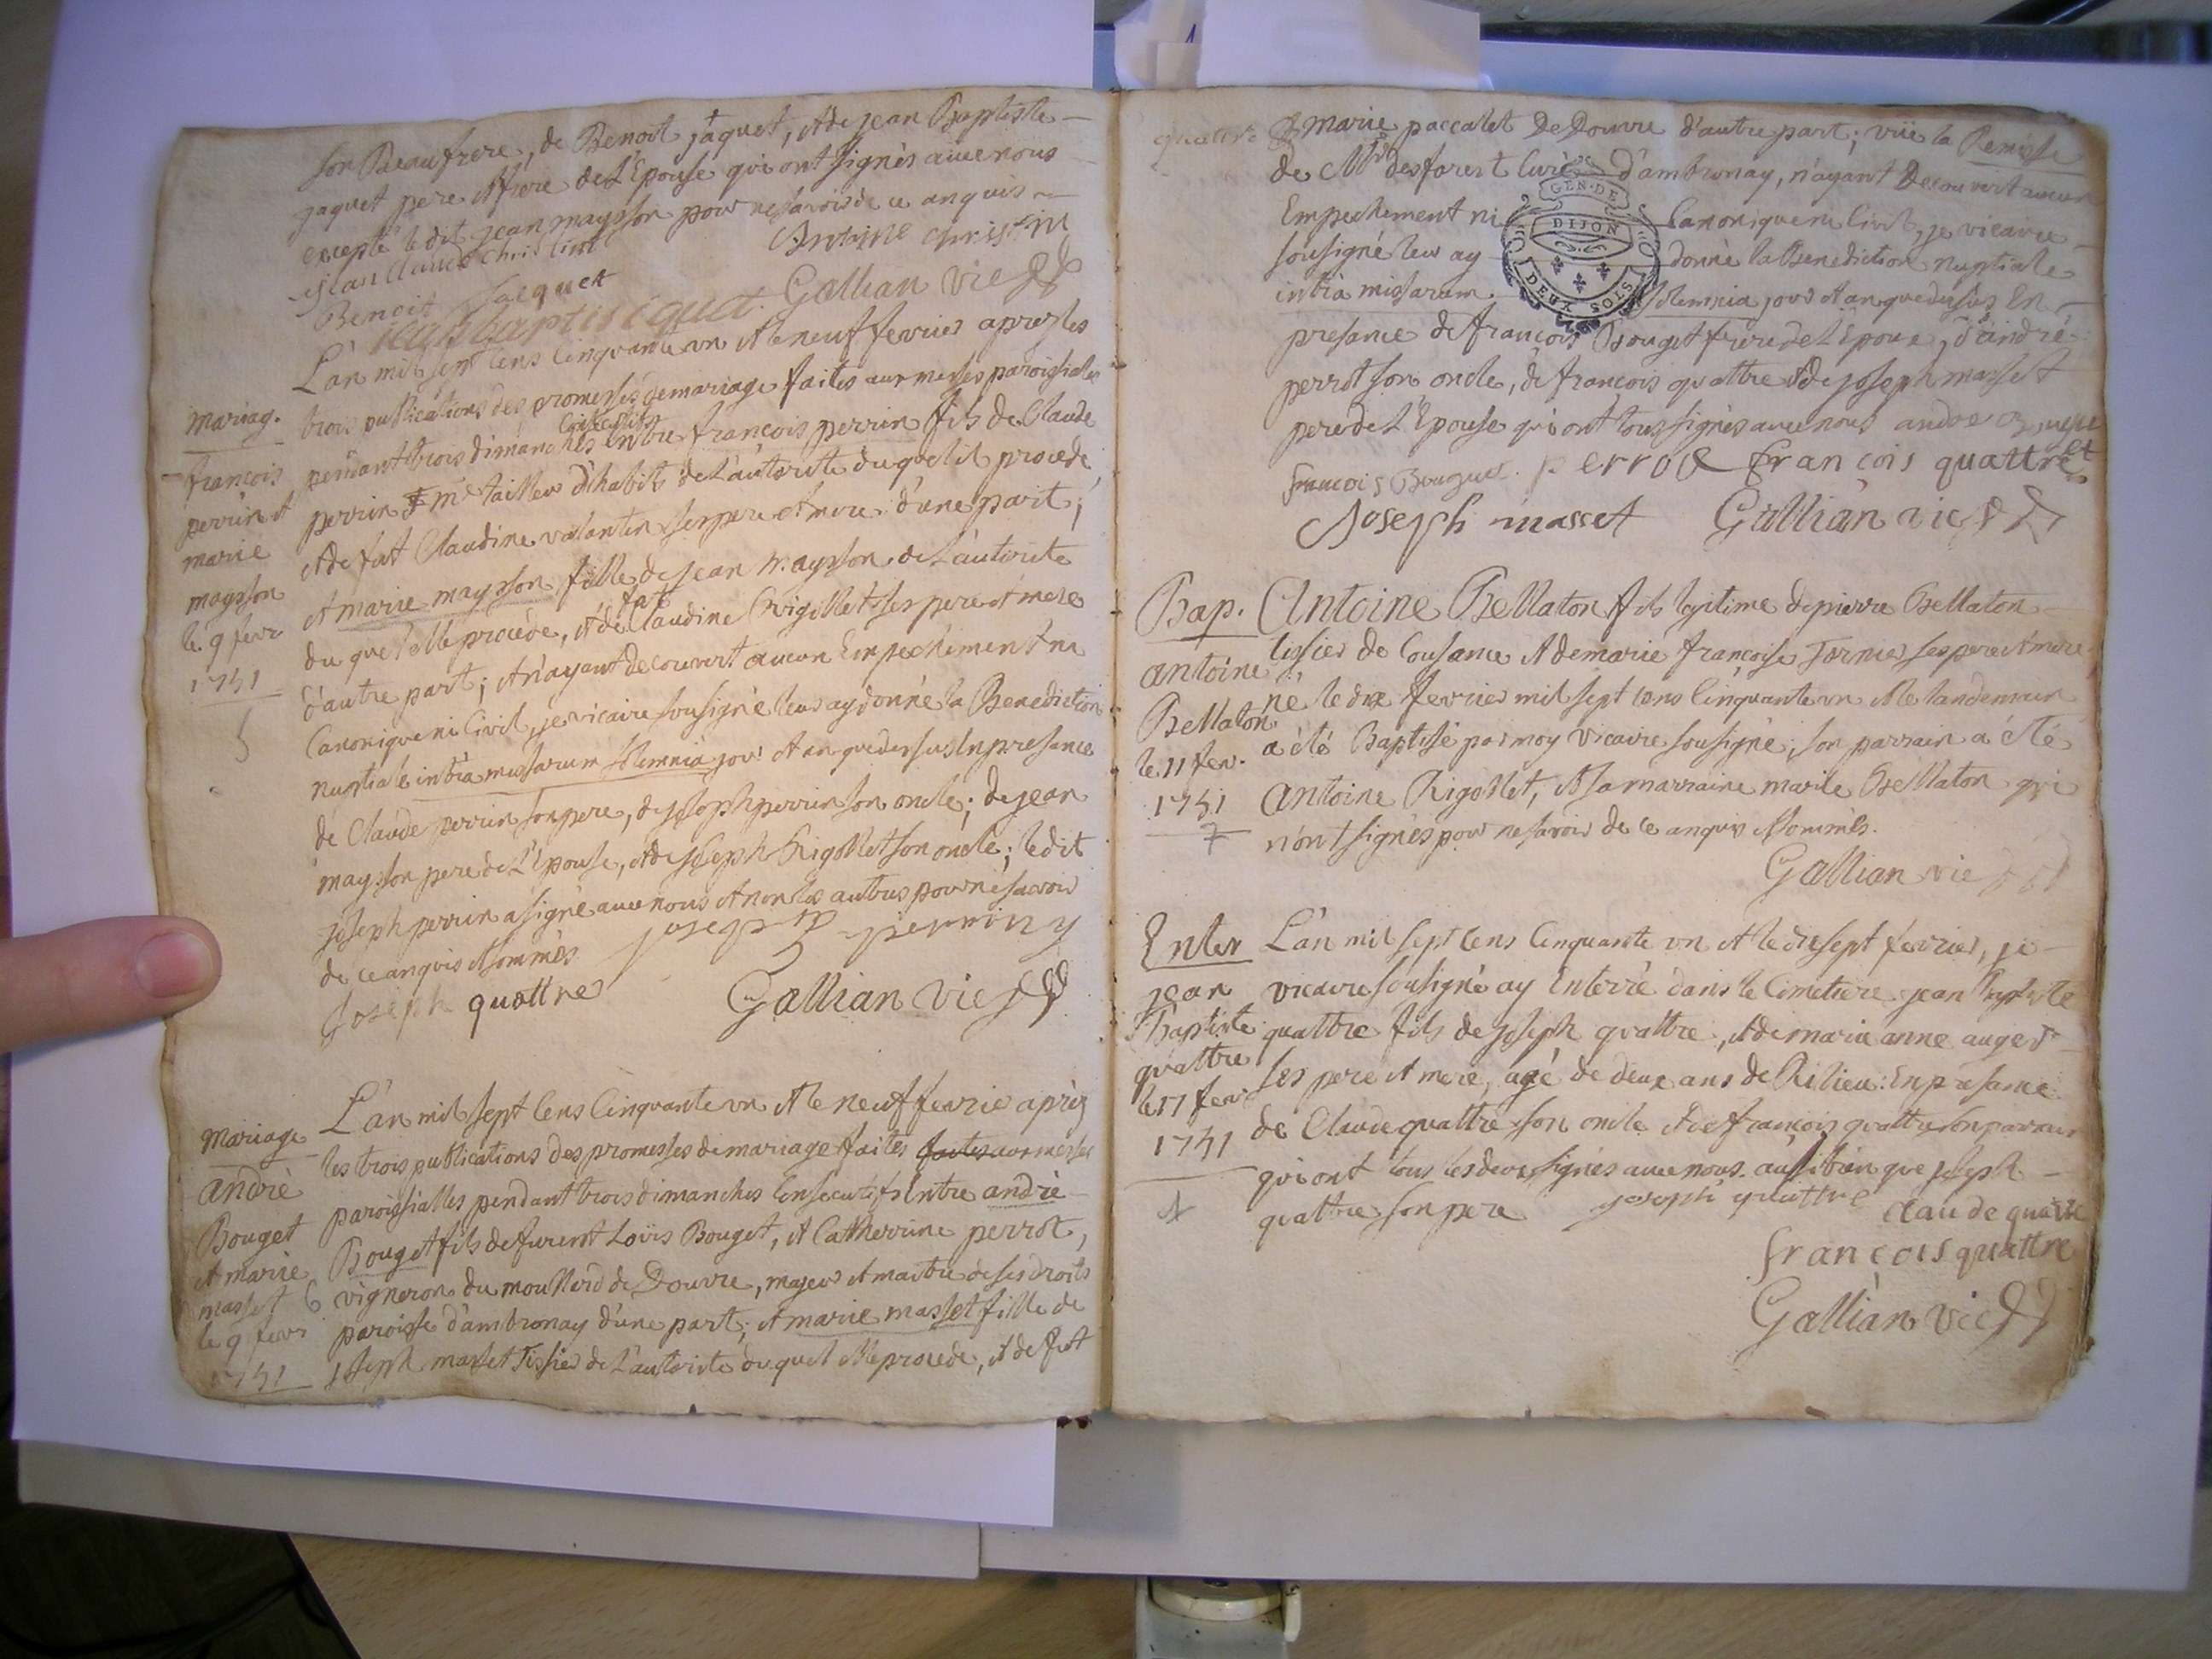 son Beaufrere, de Benoit jaquet, et de jean Baptiste
jaquet pere et frere de L'Epouse qui ont signés avec nous
excepté ledit jean maysson pour ne savoir de ce enquis
jean Claude Christin
Antoine christin
Benoit jacquet
jean baptis iquet
Gallian vic
L'an mil sept cens cinquante un et le neuf fevrier apres les
trois publications des promesses de mariage faites aux messes paroissiales
consecutifs
pendant trois dimanches entre françois perrin fils de Claude
perrin me tailleur d'habits de L'autorité du quel il procede,
et de fut Claudine valentin ses pere et mere d'une part;
et marie maysson fille de jean maysson de L'autorité
fut
du quel elle procede, et de Claudine Rigollet ses pere et mere
d'autre part; et n'ayant decouvert aucun Empechement ni
Canonique ni Civil, je vicaire sousigné leur ay donné la Benediction
nuptiale intra missarum solemnia jour et an que dessus En presance
de Claude perrin son pere, de joseph perrin son oncle; de jean
maysson pere de L'Epouse, et de joseph Rigollet son oncle; ledit
joseph perrin a signé avec nous et non les autres pour ne savoir
de ce enquis et sommés
joseph perrin
joseph quattre
Gallian vic
mariag.
françois
perrin et
marie
maysson
le 9 fevr
1751
5
L'an mil sept cens cinquante un et le neuf fevrie après
les trois publications des promesses de mariage faites faites aux messes
paroissialles pendant trois dimanches Consecutifs Entre andré
Bouget fils de furent Loüis Bouget, et Catherrine perrot,
vigneron du mollard de Douvre, majeur et maitre de ses droits
paroisse d'ambronay d'une part; et marie masset fille de
joseph masset Tissier de L'autorité du quel elle procede, et de fut
mariage
andré
Bouget
et marie
masset 6
le 9 fevr
1751
marie paccalet De Douvre d'autre part; vüe la Remisse
de Mr desforest Curé d'ambronay, n'ayant Decouvert aucun
Empechement ni Canonique ni Civil, je vicaire
sousigné leur ay donné la Benediction nuptiale
intra missarum solemnia jour et an que dessus En
presance de françois Bouget frere de L'Epoux, d'andré
perrot son oncle, de françois quattre et de joseph masset
pere de L'Epouse qui ont tous signés avec nous andre bouget
françois Bouget perrot françois quattre
Joseph masset Gallian vic
GEN. DE
DIJON
DEUX SOLS
Bap.
antoine
Bellaton
le 11 fev.
1751
7
Antoine Bellaton fils legitime de pierre Bellaton
tissier de Cousance et de marie françoise Tornier ses pere et mere
né le dix fevrier mil sept cens cinquante un et le landemain
a été Baptisé par moy vicaire sousigné, son parrain a été
antoine Rigollet, et sa marraine marie Bellaton qui
n'ont signés pour ne savoir de ce enquis et sommés.
Gallian vic
Enter
jean
Baptiste
quattre
le 17 fevr
1751
L'an mil sept cens cinquante un et le dixsept fevrier, je
vicaire sousigné ay Enterré dans le Cimetiere jean Baptiste
quattre fils de joseph quattre, et de marie anne auger
ses pere et mere, agé de deux ans de Rilieu: En presance
de Claude quattre son oncle et de françois quattre son parrain
qui ont tous les deux signés avec nous aussi bien que joseph
quattre son pere
joseph quattre
claude quattre
françois quattre
Gallian vic